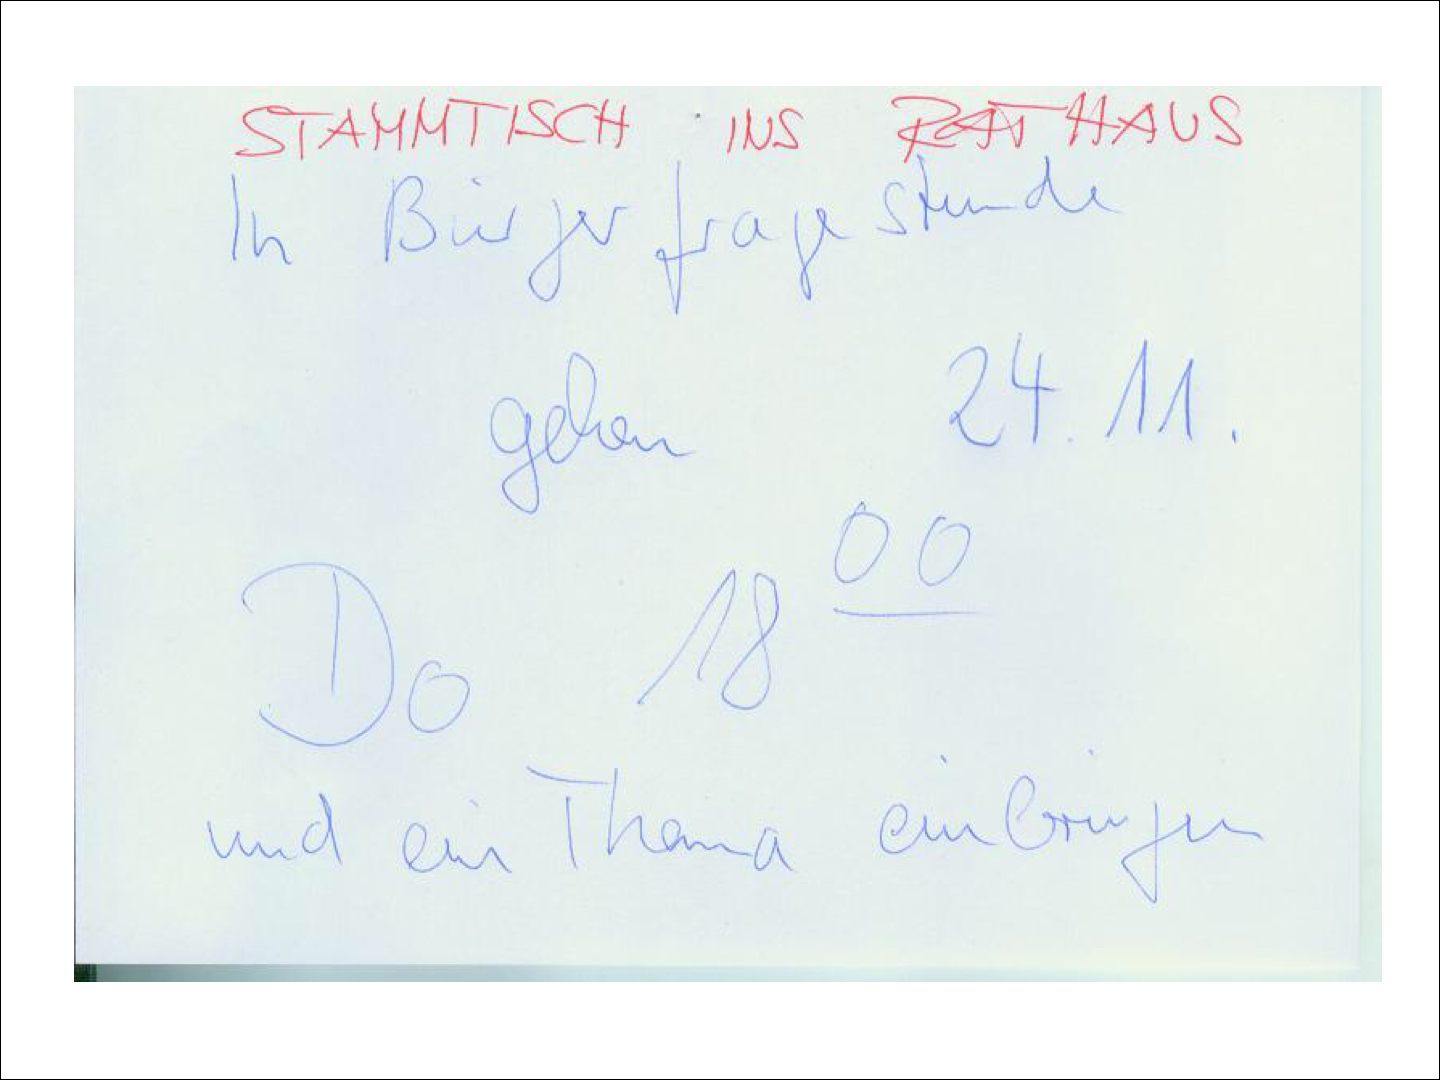 STAMMTISCH INS RATHAUS
In Bürgerfragestunde
gehen 24.11.
Do 18 00
und ein Thema einbringen